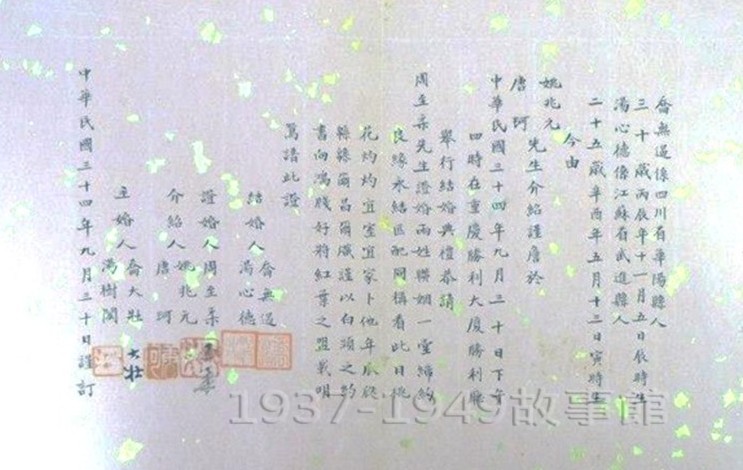 喬無遏係四川省華陽縣人
三十歲丙辰年十一月五日辰時生
湯心德係江蘇省武進縣人
二十五歲辛酉年五月十三日寅時生
今由
姚兆元
唐珂
先生介紹謹詹於
中華民國三十四年九月三十日下午
四時在重慶勝利大廈勝利廳
舉行結婚典禮恭請
周至柔先生證婚兩姓聯姻一堂締約
良緣永結匹配同稱看此日桃
花灼灼宜室宜家卜他年瓜瓞
緜緜爾昌爾熾謹以白頭之約
書向鴻牋好將紅葉之盟載明
鴛譜此證
結婚人喬無遏
湯心德
證婚人周至柔
介紹人姚兆元
唐珂
主婚人喬大壯
湯樹
中華民國三十四年九月三十日謹訂
大壯
1937-1949故事館